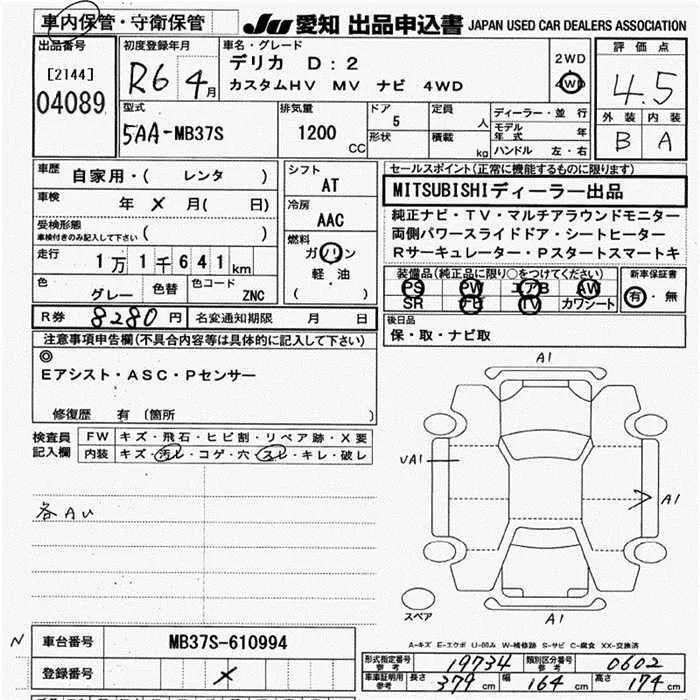 車内保管・守衛保管
JU 愛知 出品申込書 JAPAN USED CAR DEALERS ASSOCIATION
出品番号
[2144]
04089
初度登録年月
R6 4月
車名・グレード
デリカ D:2
カスタムHV MV ナビ 4WD
2WD
4WD
評価点
4.5
外装 内装
B A
型式
5AA-MB37S
排気量
1200 CC
ドア 5
形状
定員 人
積載 kg
ディーラー・並行
モデル年式 年
ハンドル 左・右
車歴 自家用・( レンタ )
車検 年 × 月( 日)
受検形態
車検付きのみ記入して下さい ( )
走行 1万1千641km
色 グレー
色替
色コード ZNC
シフト
AT
冷房
AAC
燃料
ガソリン
軽・油
( )
セールスポイント(正常に機能するものに限ります)
MITSUBISHIディーラー出品
純正ナビ・TV・マルチアラウンドモニター
両側パワースライドドア・シートヒーター
Rサーキュレーター・Pスタートスマートキ
装備品(純正品に限り○をつけてください)
PS PW エアB AW
SR ナビ TV カワシート
新車保証書
有・無
R券 8280円 名変通知期限 月 日
後日品
保・取・ナビ取
注意事項申告欄(不具合内容等は具体的に記入して下さい)
◎
Eアシスト・ASC・Pセンサー
修復歴 有 〔箇所 〕
検査員
記入欄
FW キズ・飛石・ヒビ割・リペア跡・X要
内装 キズ・汚レ・コゲ・穴・スレ・キレ・破レ
各AU
A1
UA1
A1
A1
スペア
A-キズ E-エクボ U-凹み W-補修跡 S-サビ C-腐食 XX-交換済
N
車台番号 MB37S-610994
登録番号 ×
形式指定番号 参考 19734 類別区分番号 参考 0602
車庫証明用 参考 長さ 379cm 幅 164cm 高さ 174cm